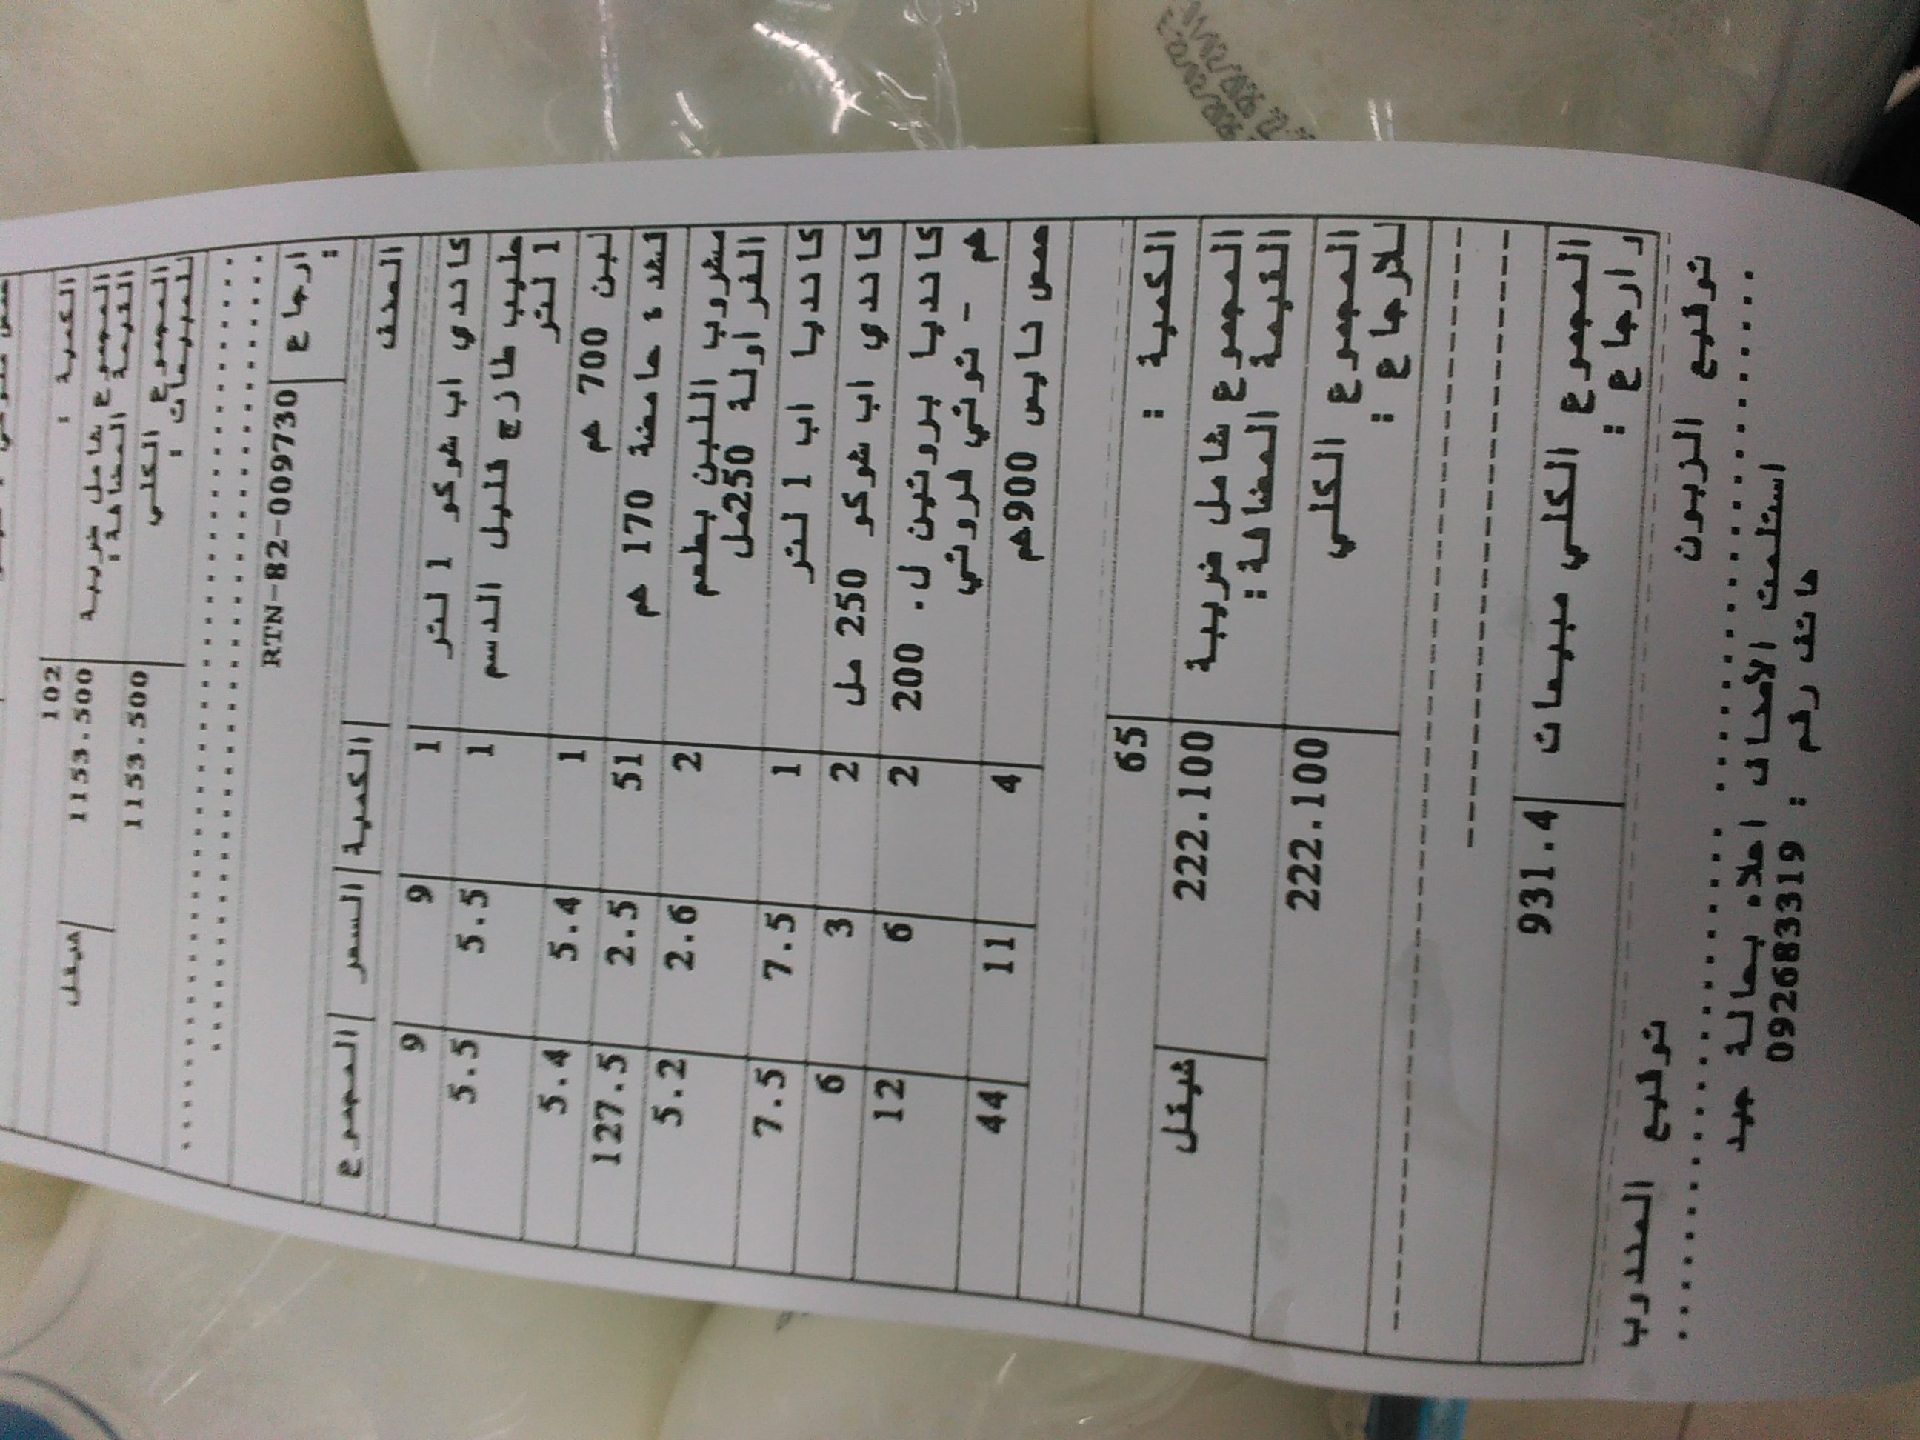 الكمية : 102
المجموع شامل ضريبة 1153.500 شيقل
القيمة المضافة:
المجموع الكلي 1153.500
للمبيعات :
ارجاع RTN-82-009730
:
الصنف الكمية السعر المجموع
كاندي اب شوكو 1 لتر 1 9 9
حليب طازج قليل الدسم 1 5.5 5.5
1 لتر
لبن 700 غم 1 5.4 5.4
قشدة حامضة 170 غم 51 2.5 127.5
مشروب اللبن بطعم 2 2.6 5.2
الفراولة 250مل
كانديا اب 1 لتر 1 7.5 7.5
كاندي اب شوكو 250 مل 2 3 6
كانديا بروتين ل. 200 2 6 12
غم - توتي فروتي
حمص نايس 900غم 4 11 44
الكمية : 65
المجموع شامل ضريبة 222.100 شيقل
القيمة المضافة:
المجموع الكلي 222.100
للارجاع :
المجموع الكلي مبيعات 931.4
وارجاع :
توقيع الزبون توقيع المندوب
استلمت الأصناف اعلاه بحالة جيد
هاتف رقم : 092683319
E:22/02/2026